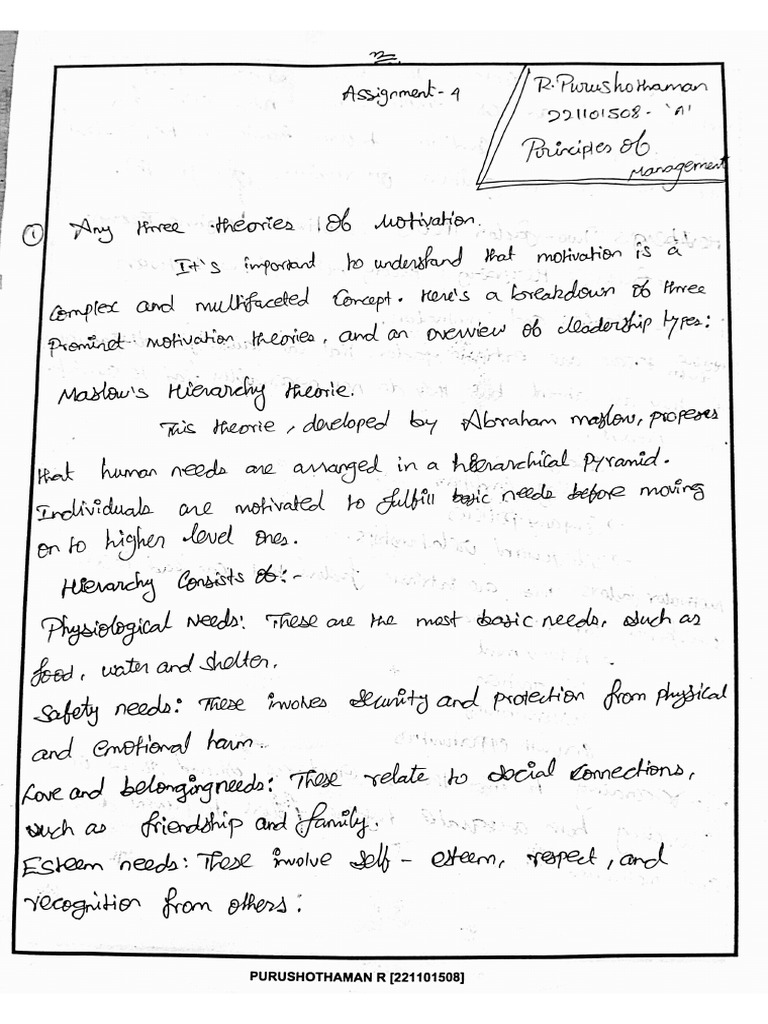 Assignment - 4
R. Purushothaman
221101508 - 'A'
Principles of
Management
① Any three theories of Motivation.
It's important to understand that motivation is a
complex and multifaceted concept. Here's a breakdown of three
Prominet motivation theories, and an overview of leadership types:
Maslow's Hierarchy theorie.
This theorie, developed by Abraham maslow, propeses
that human needs are arranged in a hierarchical pyramid.
Individuals are motivated to fulfill basic needs before moving
on to higher level ones.
Hierarchy Consists of:-
Physiological Needs: These are the most basic needs, such as
food, water and shelter.
Safety needs: These involves security and protection from physical
and emotional harm.
Love and belonging needs: These relate to social connections,
such as friendship and family.
Esteem needs: These involve self - esteem, respect, and
recognition from others:
PURUSHOTHAMAN R [221101508]